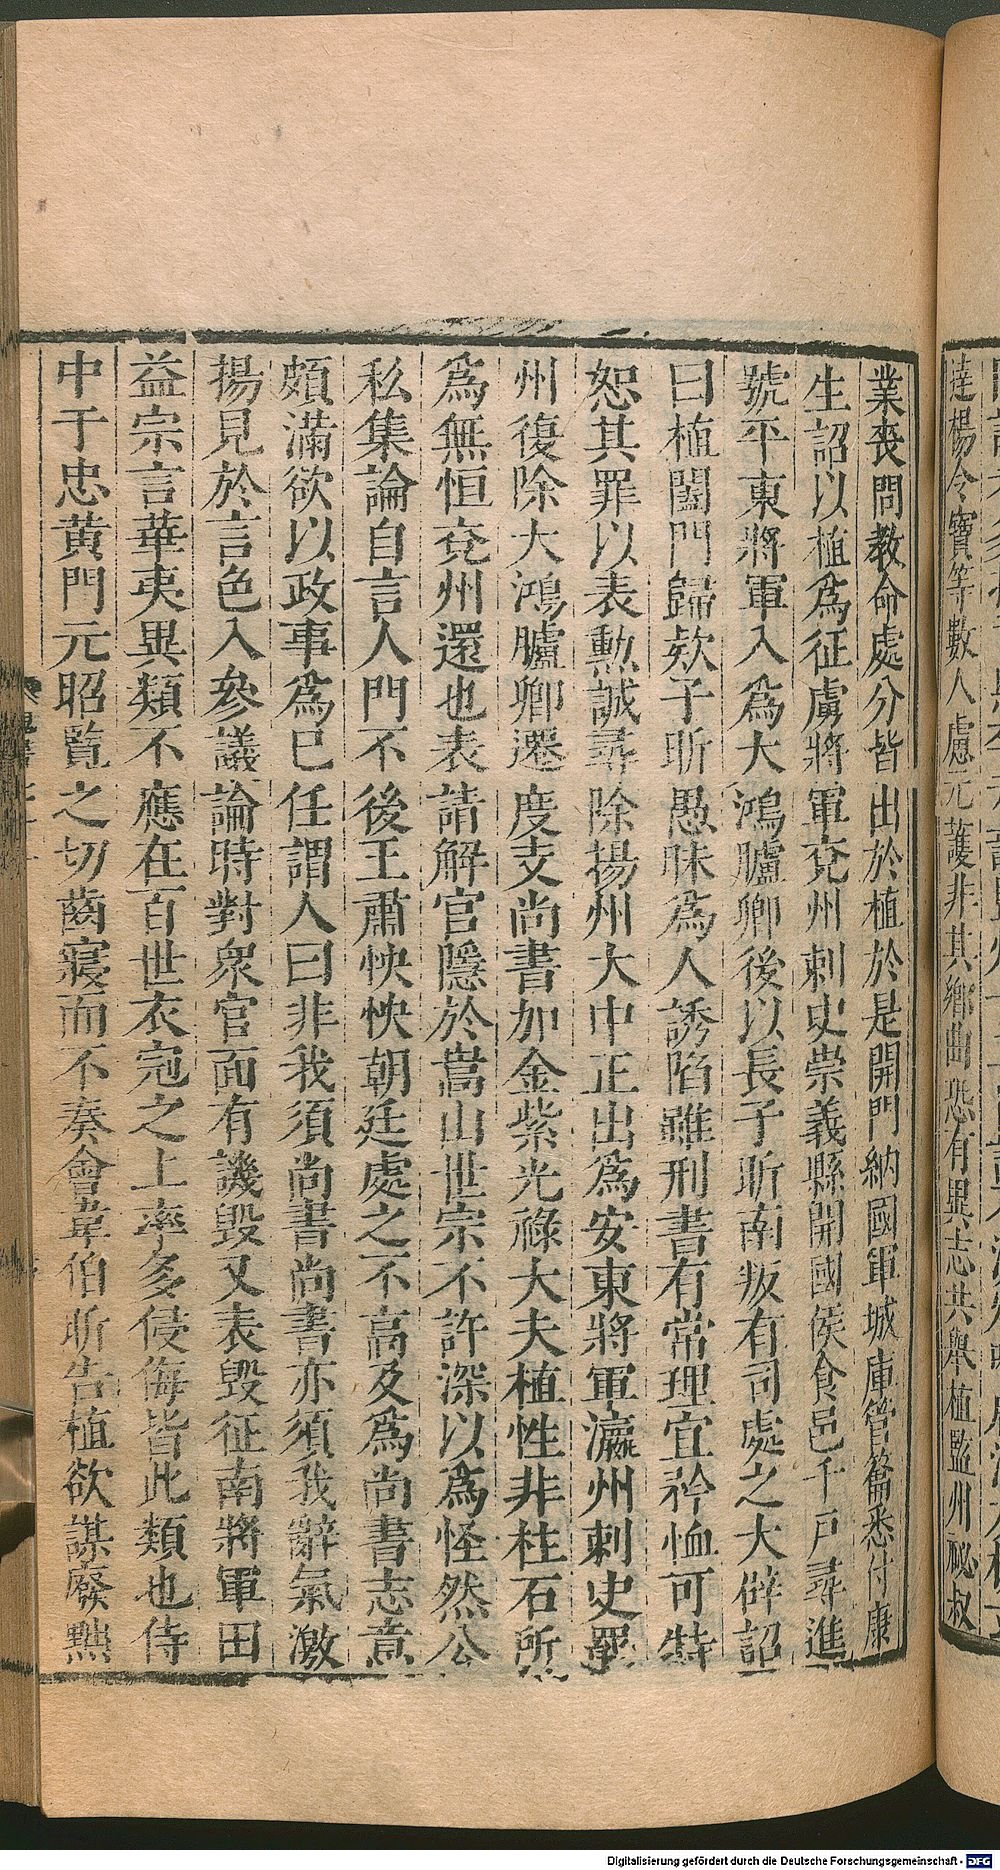 達楊令寶等數人慮元護非其鄉曲恐有異志共舉植監州祕叔
業喪問教命處分皆出於植於是開門納國軍城庫管籥悉付康
生詔以植爲征虜將軍兗州刺史崇義縣開國侯食邑千戶尋進
號平東將軍入爲大鴻臚卿後以長子昕南叛有司處之大辟詔
曰植闔門歸款子昕愚昧爲人誘陷雖刑書有常理宜矜恤可特
恕其罪以表勳誠尋除揚州大中正出爲安東將軍瀛州刺史罷
州復除大鴻臚卿遷度支尚書加金紫光祿大夫植性非柱石所
爲無恒兗州還也表請解官隱於嵩山世宗不許深以爲怪然公
私集論自言人門不後王肅怏怏朝廷處之不高及爲尚書志意
頗滿欲以政事爲已任謂人曰非我須尚書尚書亦須我辭氣激
揚見於言色入參議論時對衆官面有譏毀又表毀征南將軍田
益宗言華夷異類不應在百世衣冠之上率多侵侮皆此類也侍
中于忠黃門元昭覽之切齒寢而不奏會韋伯昕告植欲謀廢黜
Digitalisierung gefördert durch die Deutsche Forschungsgemeinschaft - DFG